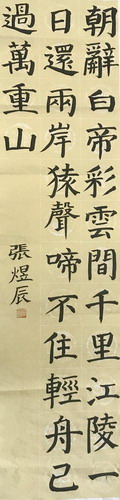 朝辭白帝彩雲間千里江陵一
日還兩岸猿聲啼不住輕舟已
過萬重山
張煜辰